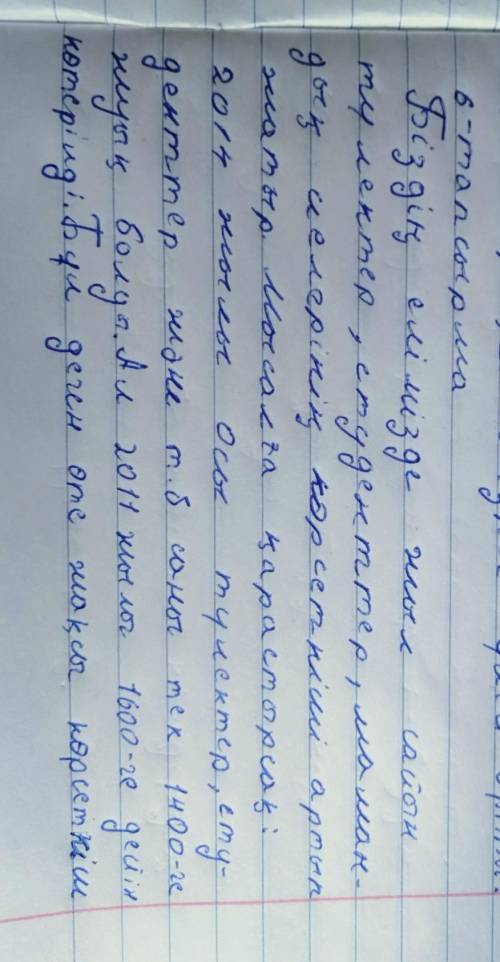 6-тапсырма
Біздің елімізде жыл сайын
түлектер, студенттер, маман-
дық иелерінің көрсеткіші артып
жатыр. Мысалға қарастырсақ:
2014 жылы осы түлектер, сту-
денттер және т.б саны тек 1400-ге
жуық болды. Ал 2011 жылы 1600-ге дейін
көтерілді. Бұл деген өте жақсы көрсеткіш